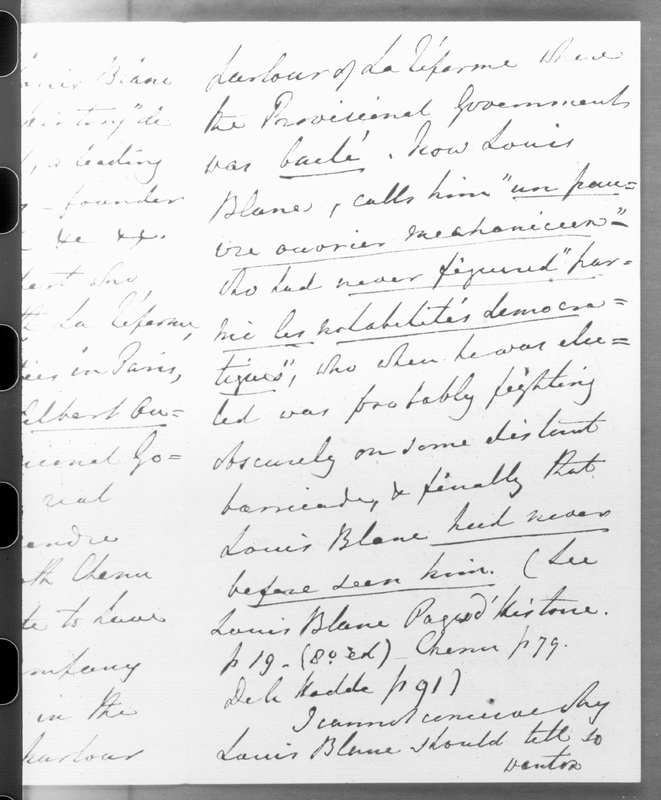 Louis Blane
"history" de
, a leading
founder
&c &c.
bert who,
La Réforme,
in Paris,
Albert Ou=
Go=
real
andre
oth Chenu
to have
ompany
in the
parlour
parlour of La Réforme where
the Provisional Government
was baclé. Now Louis
Blanc, calls him "un pau=
vre ouvrier mechanicien"
who had never figured "par=
mi les notabilités democra=
tiques", who when he was elec=
ted was probably fighting
obscurely on some distant
barricade, & finally that
Louis Blane had never
before seen him. (See
Louis Blane Pages d'Histoire.
p 19 - (8o. Ed) - Chenu p 79.
De la Hodde p 91)
I cannot conceive why
Louis Blane should tell so
wanton